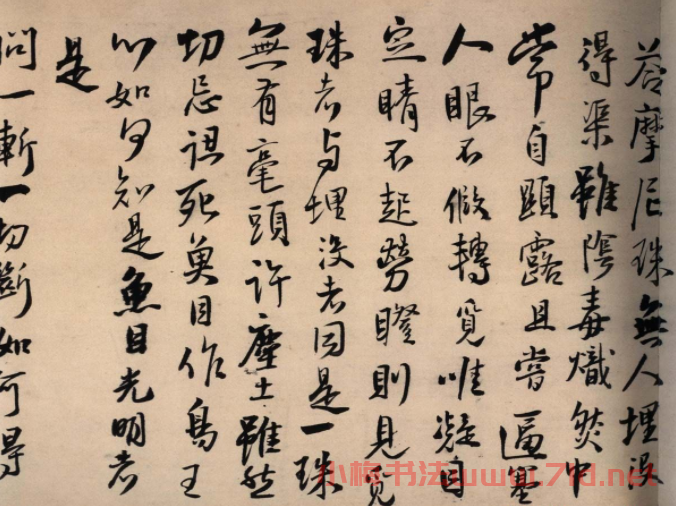 答摩尼珠無人埋没
得渠雖陰毒熾然中
常自顯露且嘗逼塞
人眼不假轉覓唯凝目
定睛不起勞瞪則見覓
珠者与埋没者同是一珠
無有毫頭許塵土雖然
切忌認死魚目作烏王
如何知是魚目光明者
是
問一斬一切斷如何得